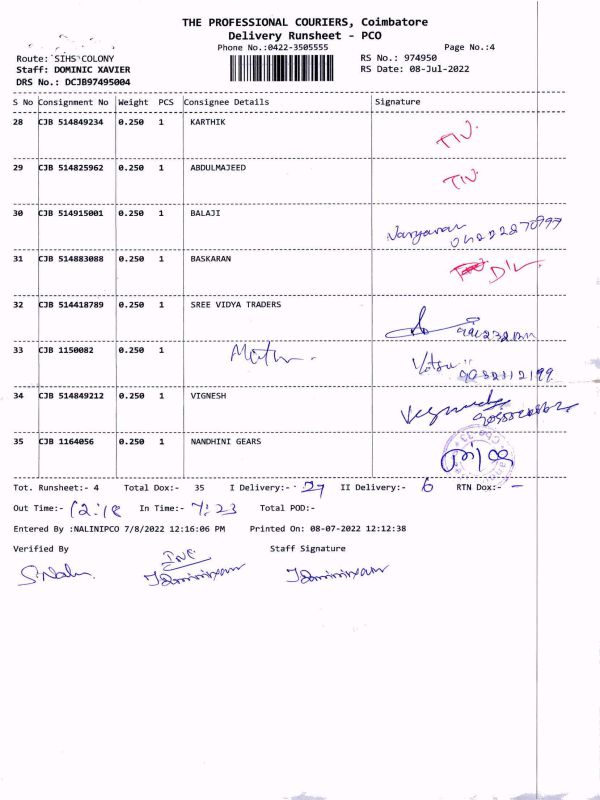 THE PROFESSIONAL COURIERS, Coimbatore
Delivery Runsheet - PCO
Phone No.:0422-3505555 Page No.:4
Route: SIHS COLONY RS No.: 974950
Staff: DOMINIC XAVIER RS Date: 08-Jul-2022
DRS No.: DCJB97495004
S No Consignment No Weight PCS Consignee Details Signature
28 CJB 514849234 0.250 1 KARTHIK
29 CJB 514825962 0.250 1 ABDULMAJEED
30 CJB 514915001 0.250 1 BALAJI
31 CJB 514883088 0.250 1 BASKARAN
32 CJB 514418789 0.250 1 SREE VIDYA TRADERS
33 CJB 1150082 0.250 1
34 CJB 514849212 0.250 1 VIGNESH
35 CJB 1164056 0.250 1 NANDHINI GEARS
Tot. Runsheet:- 4 Total Dox:- 35 I Delivery:- 27 II Delivery:- 6 RTN Dox:- -
Out Time:- 12:18 In Time:- 7:23 Total POD:-
Entered By :NALINIPCO 7/8/2022 12:16:06 PM Printed On: 08-07-2022 12:12:38
Verified By Staff Signature